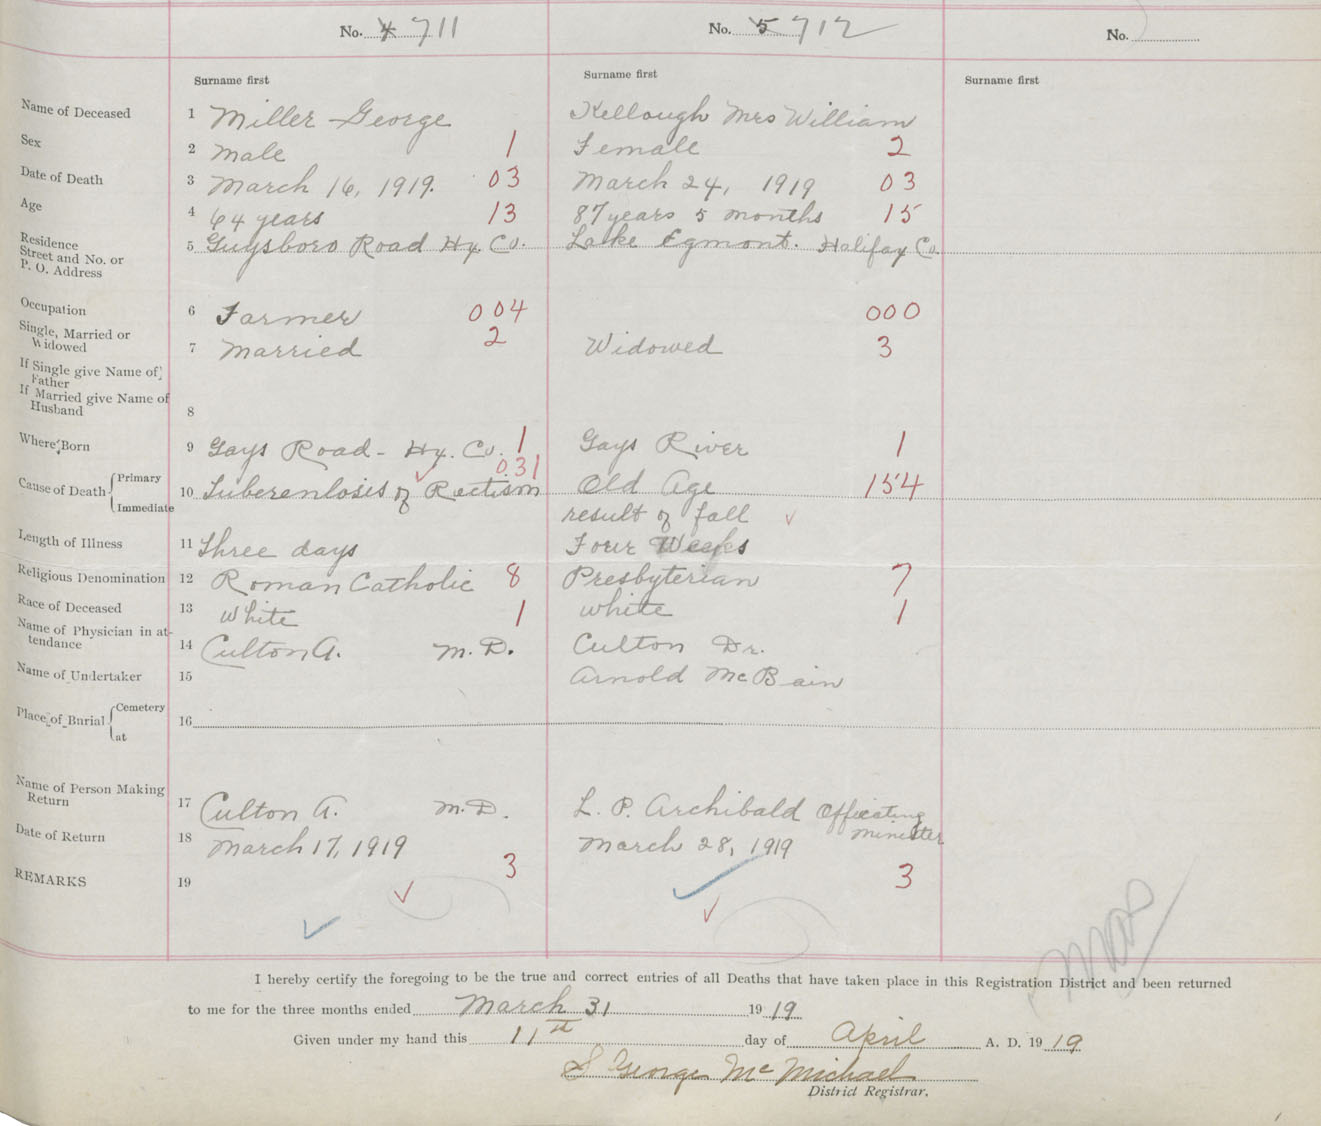 No. 4 711 No. 5 712 No.
Surname first Surname first Surname first
Name of Deceased 1 Miller George Kellough Mrs William
Sex 2 Male 1 Female 2
Date of Death 3 March 16, 1919. 03 March 24, 1919 03
Age 4 64 years 13 87 years 5 months 15
Residence
Street and No. or
P. O. Address 5 Guysboro Road Hx. Co. Lake Egmont. Halifax Co.
Occupation 6 Farmer 004 000
Single, Married or
Widowed 7 Married 2 Widowed 3
If Single give Name of
Father
If Married give Name of
Husband 8
Where Born 9 Gays Road - Hx. Co. 1 Gays River 1
031
Cause of Death { Primary
Immediate 10 Tuberculosis of Rectism Old Age 154
result of fall
Length of Illness 11 Three days Four Weeks
Religious Denomination 12 Roman Catholic 8 Presbyterian 7
Race of Deceased 13 White 1 white 1
Name of Physician in at-
tendance 14 Culton A. M. D. Culton Dr.
Name of Undertaker 15 Arnold McBain
Place of Burial { Cemetery
at 16
Name of Person Making
Return 17 Culton A. M. D. L. P. Archibald Officating
Minister
Date of Return 18 March 17, 1919 March 28, 1919
REMARKS 19 3 3
I hereby certify the foregoing to be the true and correct entries of all Deaths that have taken place in this Registration District and been returned
to me for the three months ended March 31 1919
Given under my hand this 11th day of April A. D. 1919
S George McMichael
District Registrar.